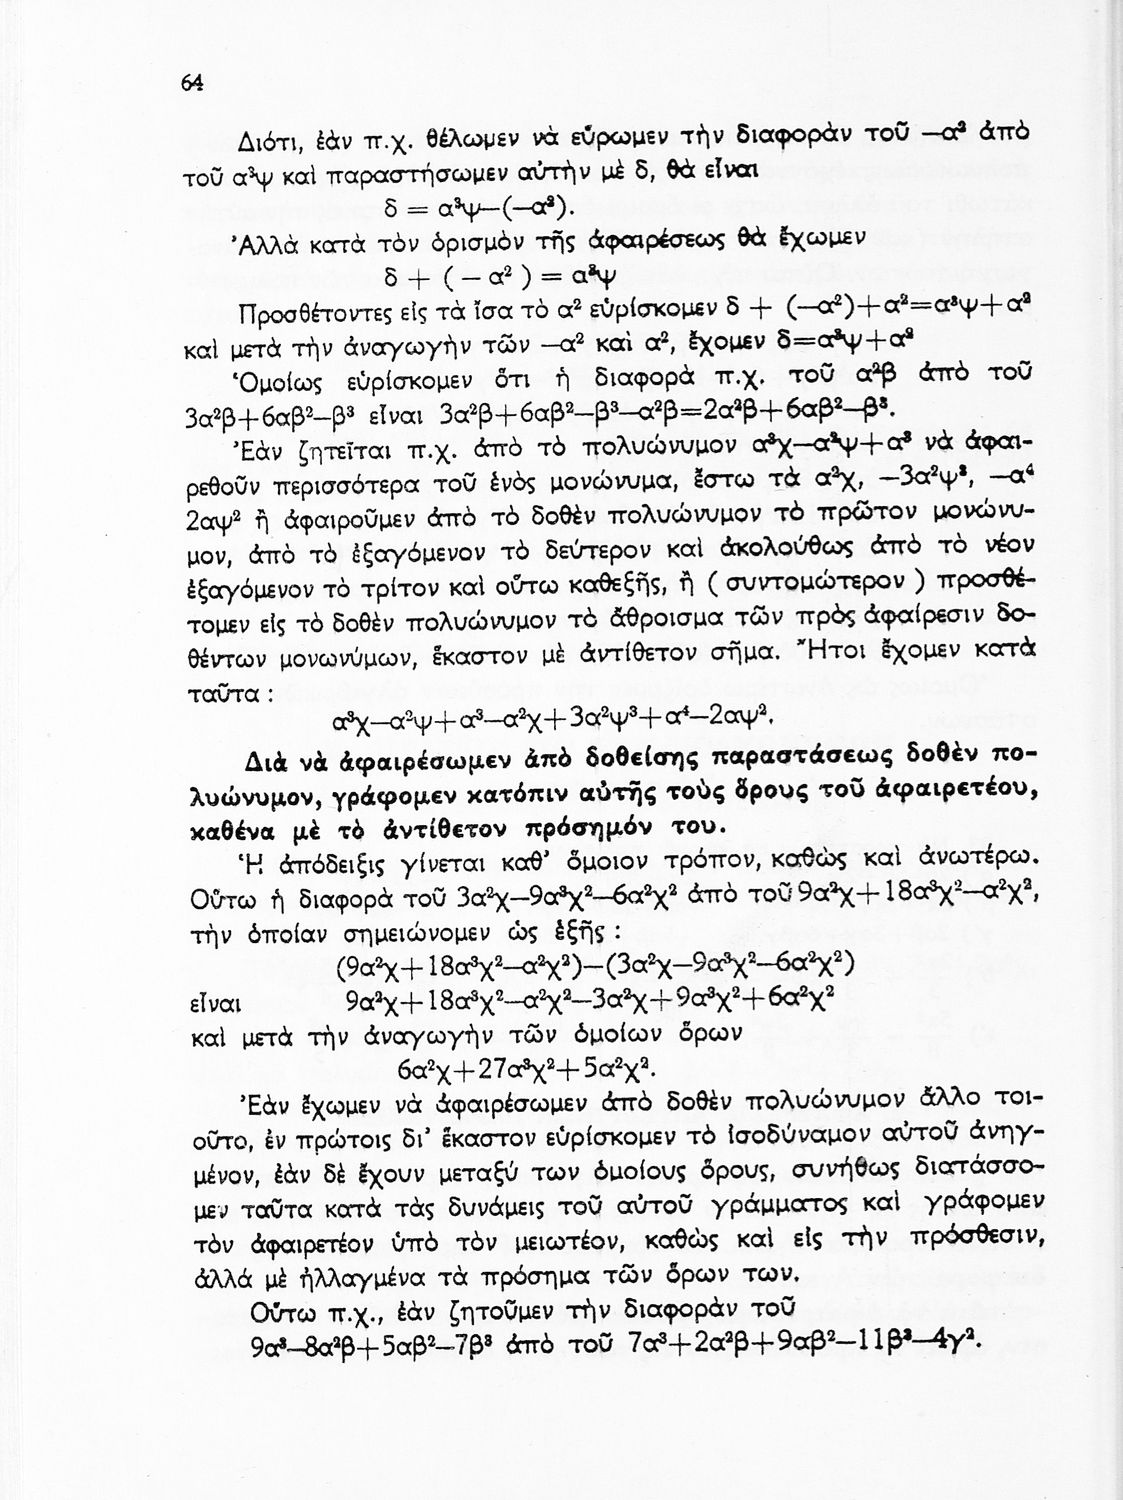 64
Διότι, ἐὰν π.χ. θέλωμεν νὰ εὕρωμεν τὴν διαφορὰν τοῦ —α² ἀπὸ
τοῦ α³ψ καὶ παραστήσωμεν αὐτὴν μὲ δ, θὰ εἶναι
δ = α³ψ—(—α²).
Ἀλλὰ κατὰ τὸν ὁρισμὸν τῆς ἀφαιρέσεως θὰ ἔχωμεν
δ + ( — α² ) = α³ψ
Προσθέτοντες εἰς τὰ ἴσα τὸ α² εὑρίσκομεν δ + (—α²)+α²=α³ψ+α²
καὶ μετὰ τὴν ἀναγωγὴν τῶν —α² καὶ α², ἔχομεν δ=α³ψ+α²
Ὁμοίως εὑρίσκομεν ὅτι ἡ διαφορὰ π.χ. τοῦ α²β ἀπὸ τοῦ
3α²β+6αβ²—β³ εἶναι 3α²β+6αβ²—β³—α²β=2α²β+6αβ²—β³.
Ἐὰν ζητεῖται π.χ. ἀπὸ τὸ πολυώνυμον α³χ—α²ψ+α³ νὰ ἀφαι-
ρεθοῦν περισσότερα τοῦ ἑνὸς μονώνυμα, ἔστω τὰ α²χ, —3α²ψ³, —α⁴
2αψ² ἢ ἀφαιροῦμεν ἀπὸ τὸ δοθὲν πολυώνυμον τὸ πρῶτον μονώνυ-
μον, ἀπὸ τὸ ἐξαγόμενον τὸ δεύτερον καὶ ἀκολούθως ἀπὸ τὸ νέον
ἐξαγόμενον τὸ τρίτον καὶ οὕτω καθεξῆς, ἢ ( συντομώτερον ) προσθέ-
τομεν εἰς τὸ δοθὲν πολυώνυμον τὸ ἄθροισμα τῶν πρὸς ἀφαίρεσιν δο-
θέντων μονωνύμων, ἕκαστον μὲ ἀντίθετον σῆμα. Ἤτοι ἔχομεν κατὰ
ταῦτα :
α³χ—α²ψ+α³—α²χ+3α²ψ³+α⁴—2αψ².
Διὰ νὰ ἀφαιρέσωμεν ἀπὸ δοθείσης παραστάσεως δοθὲν πο-
λυώνυμον, γράφομεν κατόπιν αὐτῆς τοὺς ὅρους τοῦ ἀφαιρετέου,
καθένα μὲ τὸ ἀντίθετον πρόσημόν του.
Ἡ ἀπόδειξις γίνεται καθ' ὅμοιον τρόπον, καθὼς καὶ ἀνωτέρω.
Οὕτω ἡ διαφορὰ τοῦ 3α²χ—9α³χ²—6α²χ² ἀπὸ τοῦ 9α²χ+18α³χ²—α²χ²,
τὴν ὁποίαν σημειώνομεν ὡς ἑξῆς :
(9α²χ+18α³χ²—α²χ²)—(3α²χ—9α³χ²—6α²χ²)
εἶναι 9α²χ+18α³χ²—α²χ²—3α²χ+9α³χ²+6α²χ²
καὶ μετὰ τὴν ἀναγωγὴν τῶν ὁμοίων ὅρων
6α²χ+27α³χ²+5α²χ².
Ἐὰν ἔχωμεν νὰ ἀφαιρέσωμεν ἀπὸ δοθὲν πολυώνυμον ἄλλο τοι-
οῦτο, ἐν πρώτοις δι' ἕκαστον εὑρίσκομεν τὸ ἰσοδύναμον αὐτοῦ ἀνηγ-
μένον, ἐὰν δὲ ἔχουν μεταξύ των ὁμοίους ὅρους, συνήθως διατάσσο-
μεν ταῦτα κατὰ τὰς δυνάμεις τοῦ αὐτοῦ γράμματος καὶ γράφομεν
τὸν ἀφαιρετέον ὑπὸ τὸν μειωτέον, καθὼς καὶ εἰς τὴν πρόσθεσιν,
ἀλλά μὲ ἠλλαγμένα τὰ πρόσημα τῶν ὅρων των.
Οὕτω π.χ., ἐὰν ζητοῦμεν τὴν διαφορὰν τοῦ
9α³—8α²β+5αβ²—7β³ ἀπὸ τοῦ 7α³+2α²β+9αβ²—11β³—4γ².